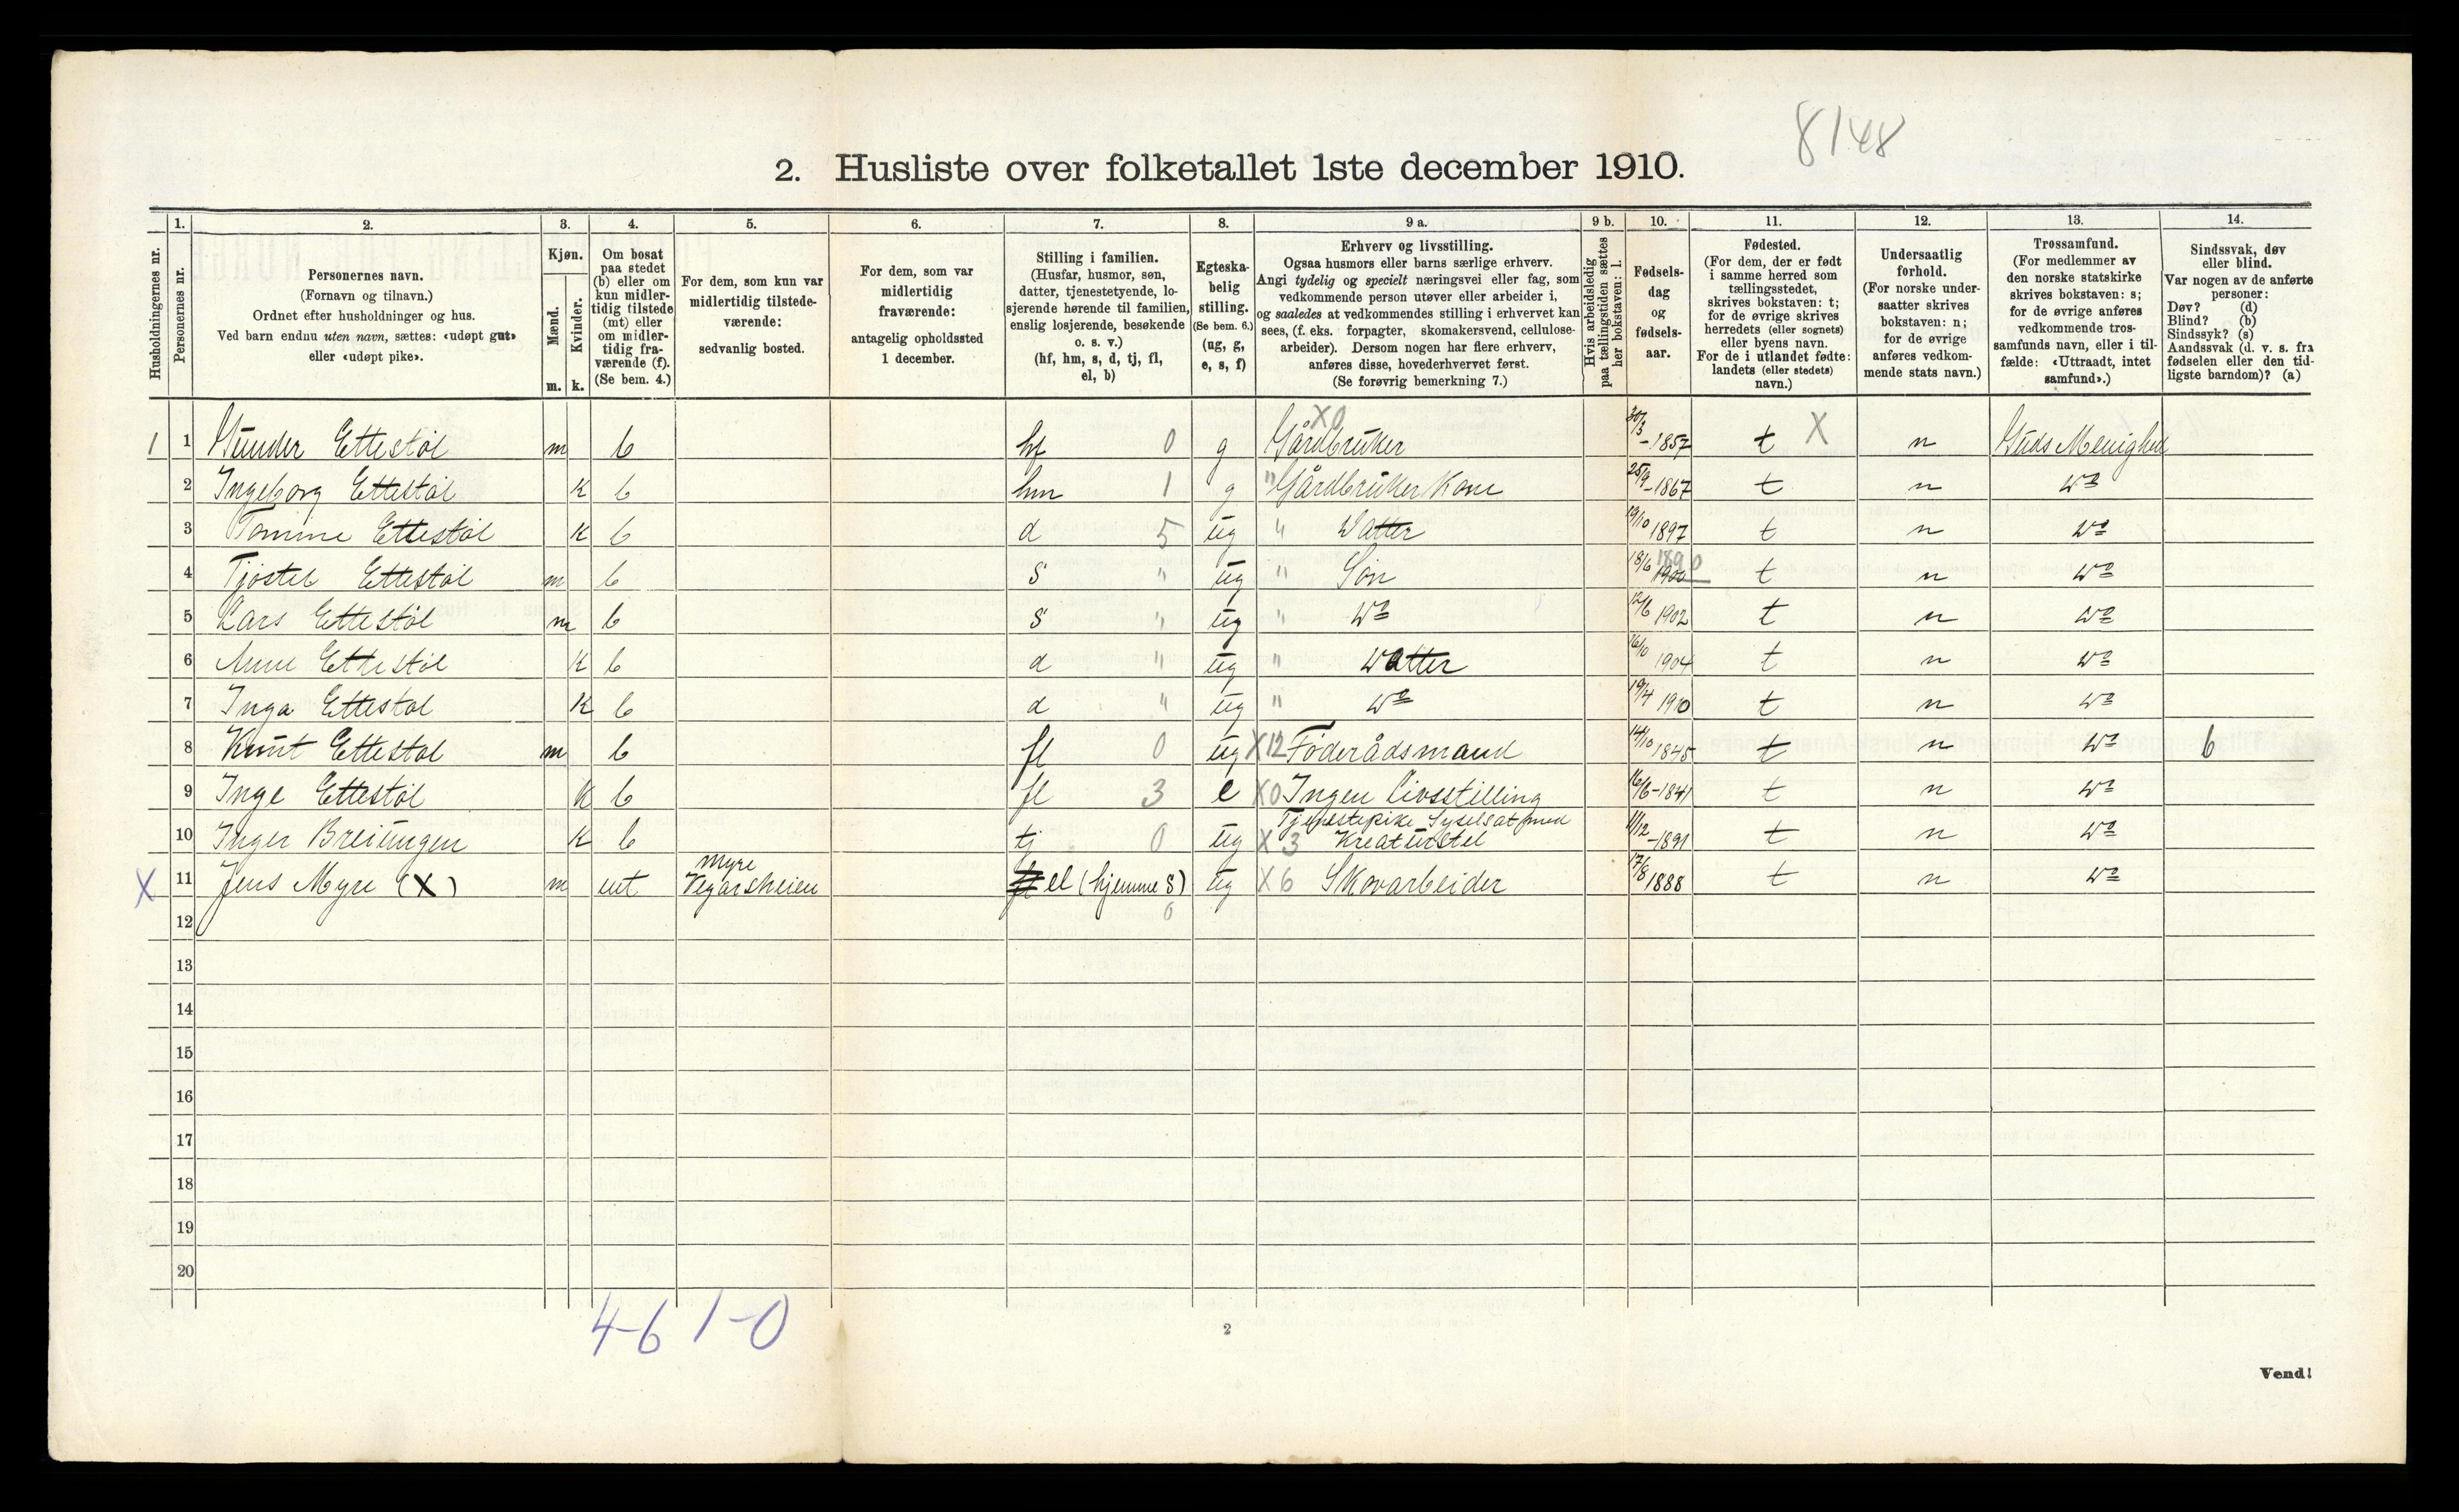 8148
2. Husliste over folketallet 1ste december 1910.
Husholdningernes nr.
1. Personernes nr.
2. Personernes navn.
(Fornavn og tilnavn.)
Ordnet efter husholdninger og hus.
Ved barn endnu uten navn, sættes: «udøpt gut»
eller «udøpt pike».
3. Kjøn.
Mænd. m.
Kvinder. k.
4. Om bosat
paa stedet
(b) eller om
kun midler-
tidig tilstede
(mt) eller
om midler-
tidig fra-
værende (f).
(Se bem. 4.)
5. For dem, som kun var
midlertidig tilstede-
værende:
sedvanlig bosted.
6. For dem, som var
midlertidig
fraværende:
antagelig opholdssted
1 december.
7. Stilling i familien.
(Husfar, husmor, søn,
datter, tjenestetyende, lo-
sjerende hørende til familien,
enslig losjerende, besøkende
o. s. v.)
(hf, hm, s, d, tj, fl,
el, b)
8. Egteska-
belig
stilling.
(Se bem. 6.)
(ug, g,
e, s, f)
9 a. Erhverv og livsstilling.
Ogsaa husmors eller barns særlige erhverv.
Angi tydelig og specielt næringsvei eller fag, som
vedkommende person utøver eller arbeider i,
og saaledes at vedkommendes stilling i erhvervet kan
sees, (f. eks. forpagter, skomakersvend, cellulose-
arbeider). Dersom nogen har flere erhverv,
anføres disse, hovederhvervet først.
(Se forøvrig bemerkning 7.)
9 b. Hvis arbeidsledig
paa tællingstiden sættes
her bokstaven: l.
10. Fødsels-
dag
og
fødsels-
aar.
11. Fødested.
(For dem, der er født
i samme herred som
tællingsstedet,
skrives bokstaven: t;
for de øvrige skrives
herredets (eller sognets)
eller byens navn.
For de i utlandet fødte:
landets (eller stedets)
navn.)
12. Undersaatlig
forhold.
(For norske under-
saatter skrives
bokstaven: n;
for de øvrige
anføres vedkom-
mende stats navn.)
13. Trossamfund.
(For medlemmer av
den norske statskirke
skrives bokstaven: s;
for de øvrige anføres
vedkommende tros-
samfunds navn, eller i til-
fælde: «Uttraadt, intet
samfund».)
14. Sindssvak, døv
eller blind.
Var nogen av de anførte
personer:
Døv? (d)
Blind? (b)
Sindssyk? (s)
Aandssvak (d. v. s. fra
fødselen eller den tid-
ligste barndom)? (a)
1 1 Gunder Ettestøl m b hf 0 g X0 Gårdbruker 30/3 - 1857 t X n Guds Menighed
2 Ingeborg Ettestøl K b hm 1 g " Gårdbruker Kone 25/9 - 1867 t n Do
3 Tomine Ettestøl K b d 5 ug " Datter 19/10 1897 t n Do
4 Tjøstel Ettestøl m b s " ug " Søn 18/6 1900 1890 t n Do
5 Lars Ettestøl m b s " ug " Do 12/6 1902 t n Do
6 Anne Ettestøl K b d " ug " Datter 16/10 1904 t n Do
7 Inga Ettestøl K b d " ug " Do 19/4 1910 t n Do
8 Knut Ettestøl m b fl 0 ug X12 Føderådsmand 14/10 1845 t n Do b
9 Inge Ettestøl K b fl 3 e X0 Ingen Livsstilling 16/6 - 1841 t n Do
10 Inger Breiungen K b tj 0 ug X 3 Tjenestepike Syselsat med Kreaturstel 11/12 - 1891 t n Do
X 11 Jens Myre (X) m mt Myre Vegårsheien el (hjemme s) 0 ug X 6 Skovarbeider 17/8 1888 t n Do
12
13
14
15
16
17
18
19
20
4-6 1-0
2
Vend!